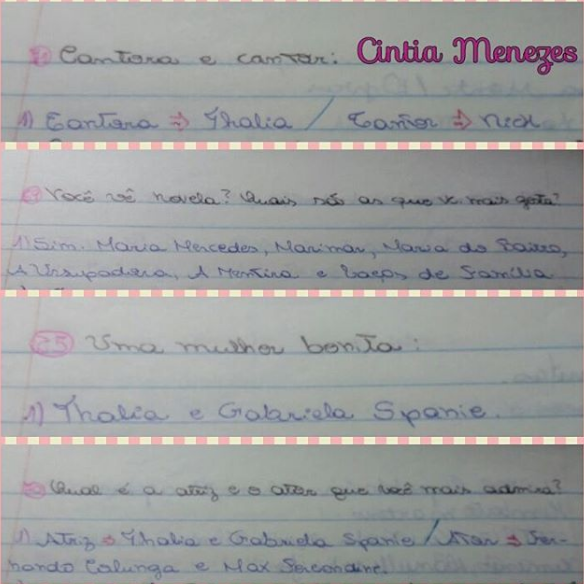 Cantora e cantor: Cintia Menezes
1) Cantora ⇒ Thalia / Cantor ⇒ Nick
Você vê novela? Quais são as que vc mais gosta?
1) Sim. Maria Mercedes, Marimar, Maria do Bairro,
A Usupadora, A Mentira e Laços de Família
25 Uma mulher bonita:
1) Thalia e Gabriela Spanic.
Qual é a atriz e o ator que você mais admira?
1) Atriz ⇒ Thalia e Gabriela Spanic / Ator ⇒ Fer-
nando Colunga e Max